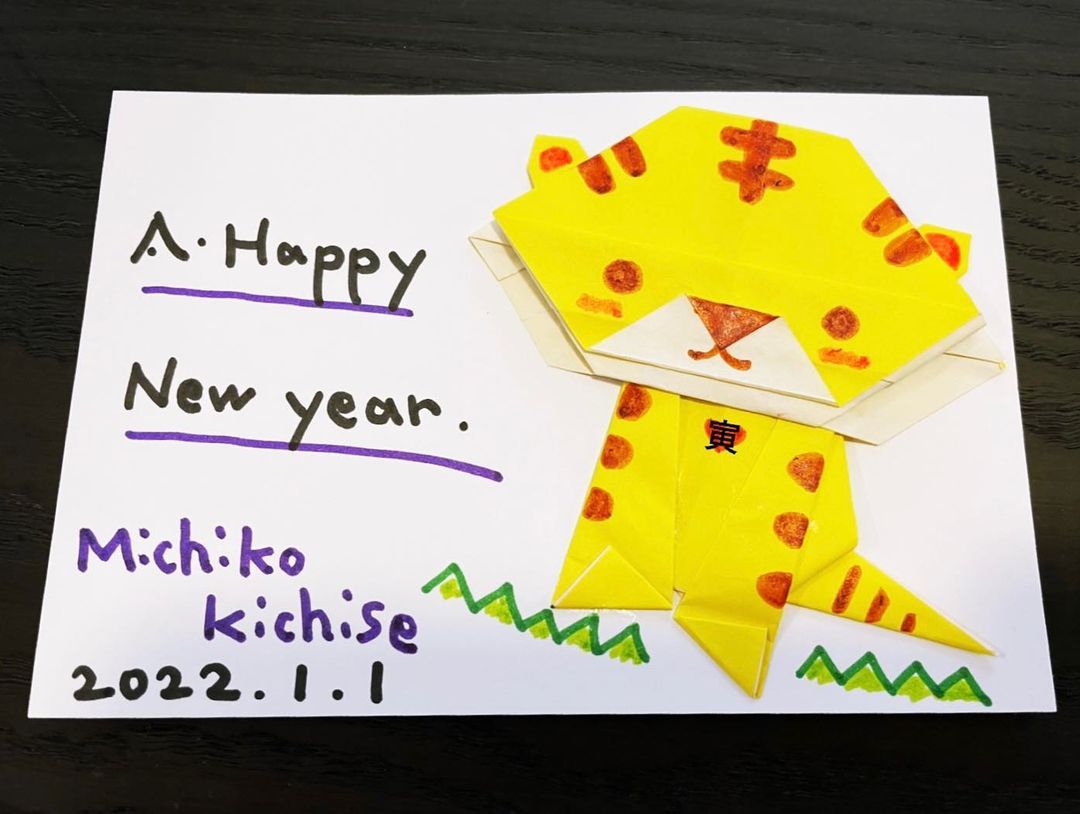 A. Happy
New year.
Michiko
kichise
2022.1.1
寅